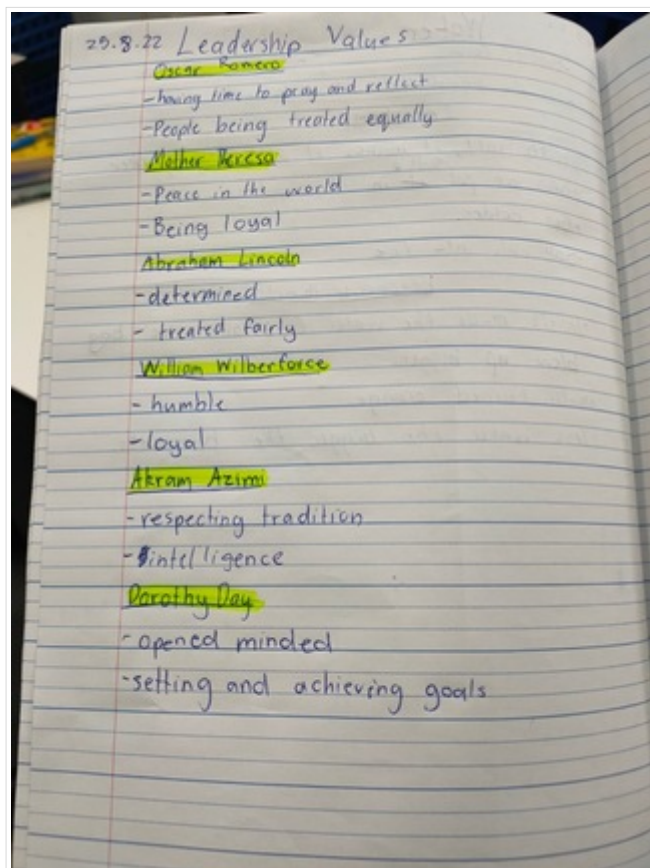 25.8.22 Leadership Values
Oscar Romero
-having time to pray and reflect
-People being treated equally
Mother Teresa
-Peace in the world
-Being loyal
Abraham Lincoln
-determined
- treated fairly
William Wilberforce
- humble
-loyal
Akram Azimi
-respecting tradition
-intelligence
Dorothy Day
-opened minded
-setting and achieving goals